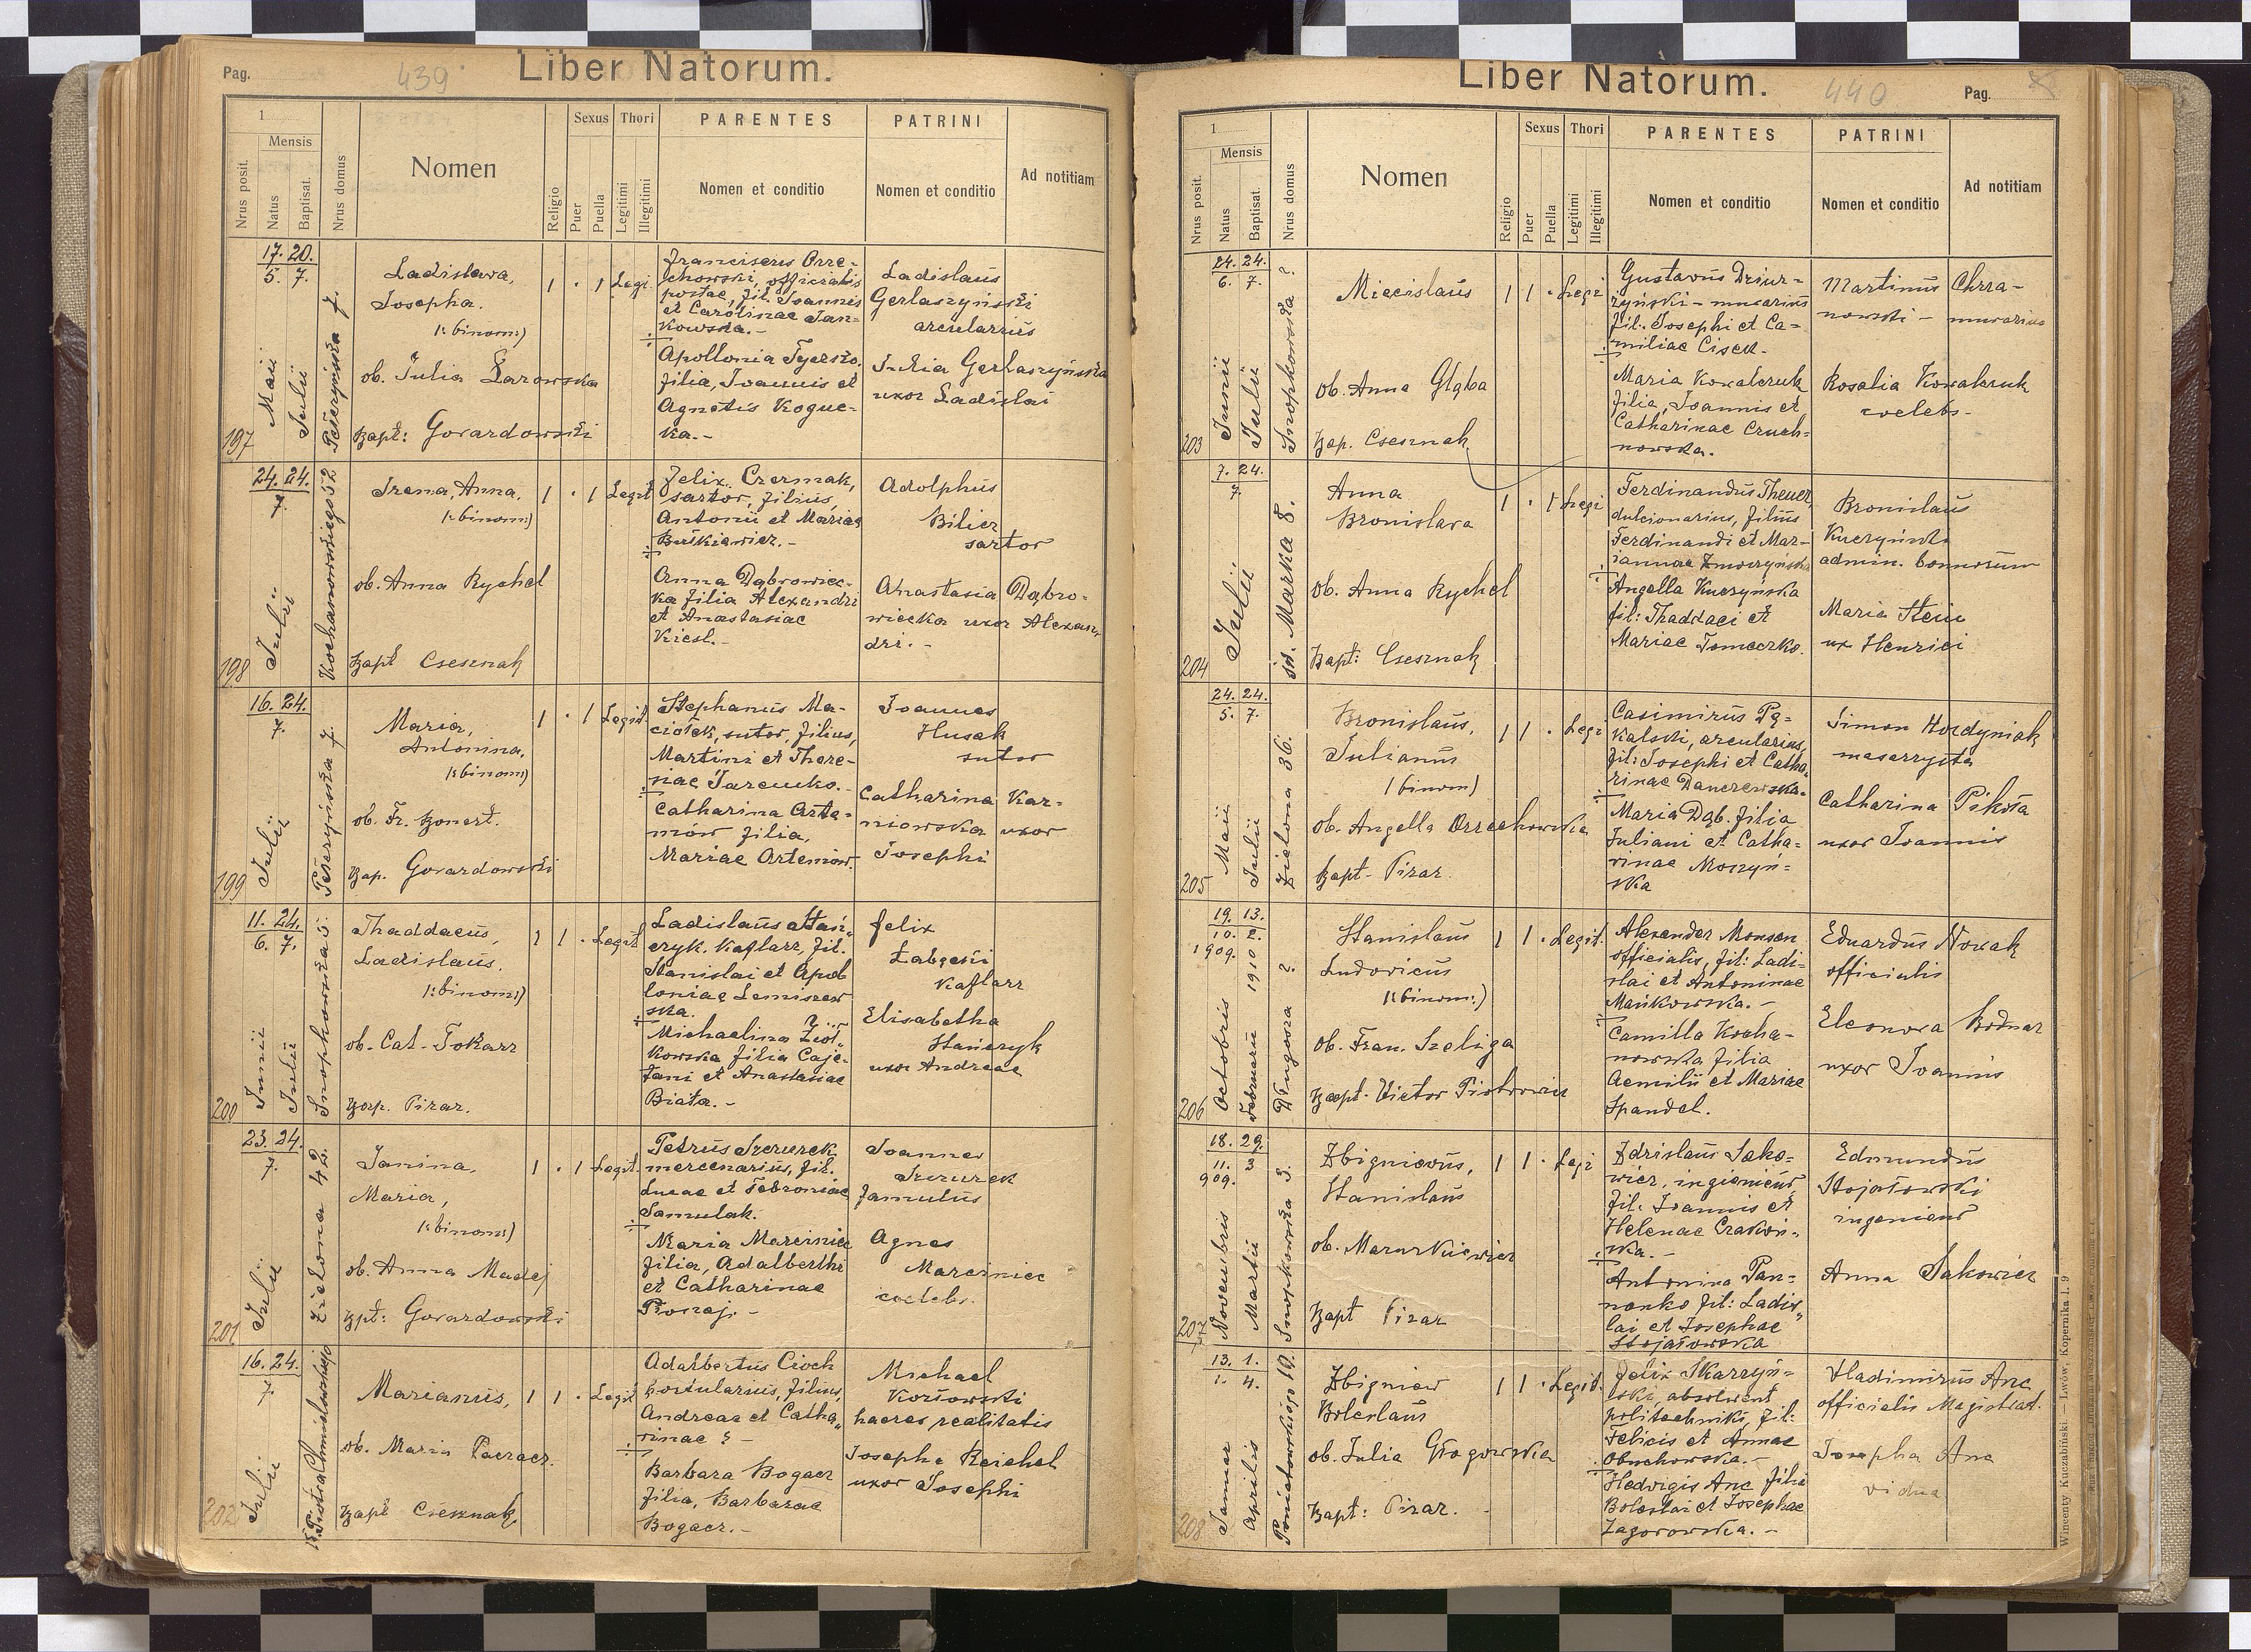 Pag.
439
Liber Natorum.
1
Mensis
Nrus posit.
Natus
Baptisat.
Nrus domus
Nomen
Religio
Sexus
Puer
Puella
Thori
Legitimi
Illegitimi
PARENTES
Nomen et conditio
PATRINI
Nomen et conditio
Ad notitiam
197
17. 20.
5. 7.
Maii
Julii
7.
Ladislava,
Josepha.
/:binom:/
ob. Julia Żarowska
bapt: Gorardowski
1 · 1 Legi.
Franciscus Orze-
chowski, officialis
postae, fil. Joannis
et Carolinae Jan-
kowska. -
Apollonia
filia, Joannis et
Agnetis Kogut-
ka. -
Ladislaus
Gerlaszyński
arcularius
Julia Gerlaszyńska
uxor Ladislai
198
24. 24.
7.
Julii
Kochanowskiego 52
Irena, Anna,
/:binom:/
ob. Anna Rychel
bapt Csesznak
1 · 1 Legit
Felix Czermak,
sartor, filius,
Antonii et Mariae
Anna Dąbrowiec-
ka filia Alexandri
et Anastasiae
Kiesl. -
Adolphus
Bilicz
sartor
Anastasia Dąbro-
wiecka uxor Alexan-
dri. -
199
16. 24.
7.
Julii
7.
Maria,
Antonina,
/:binom:/
ob. Fr. Bonert.
bap. Gorardowski
1 · 1 Legit.
Stephanus Ma-
ciołek, sutor, filius,
Martini et There-
siae Jaremko. -
Catharina Arta-
mów filia,
Mariae Artemiow.
Joannes
Husak
sutor
Catharina Kar-
niowska uxor
Josephi
200
11. 24.
6. 7.
Junii
Julii
Snopkowska 5.
Thaddaeus,
Ladislaus.
/:binom:/
ob. Cat. Tokarz
bap. Pirar.
1 1 · Legit
Ladislaus Stań-
czyk. kaflarz, fil.
Stanislai et Apol
loniae Lemiszew
ska.
Michaelina Ziół-
kowska filia Caje-
tani et Anastasiae
Biała. -
Felix
Łabęcki
kaflarz
Elisabetha
Stańczyk
uxor Andreae
201
23. 24.
7.
Julii
Zielona 42.
Janina,
Maria,
/:binom:/
ob. Anna Madej
bpt: Gorardowski
1 · 1 Legit.
Petrus Szczurek
mercenarius, fil.
Lucae et Febroniae
Samulak.
Maria Marciniec
filia, Adalberthi
et Catharinae
Joannes
Szczurek
famulus
Agnes
Marciniec
coelebs.
202
16. 24.
7.
Julii
Marianus,
ob. Maria Paczacz.
bapt Csesznak
1 1 · Legit
Adalbertus Cioch
hortularius, filius,
Andreae et Catha-
rinae ? -
Barbara Bogacz
filia, Barbarae
Bogacz. -
Michael
Kozłowski
haeres realitatis
Josepha Reichel
uxor Josephi
Liber Natorum.
440
Pag.
1
Mensis
Nrus posit.
Natus
Baptisat.
Nrus domus
Nomen
Religio
Sexus
Puer
Puella
Thori
Legitimi
Illegitimi
PARENTES
Nomen et conditio
PATRINI
Nomen et conditio
Ad notitiam
203
24. 24.
6. 7.
Junii
Julii
Snopkowska ?
Miecislaus
ob. Anna Głąba
bap. Csesznak
1 1 · Legi
Gustavus Dziur-
żyński - murarius
fil. Josephi et Ca-
miliae Cisek -
Maria Kowalczuk
filia, Joannis et
Catharinae Czuch-
nowska.
Martinus Chrza-
nowski - murarius
Rosalia Kowalczuk
coelebs -
204
7. 24.
7.
Julii
św. Marka 8.
Anna
Bronislava
ob. Anna Rychel
bapt: Csesznak
1 · 1 Legi
Ferdinandus Theuer,
dulcionarius, filius
Ferdinandi et Mar-
iannae
Angella Kuczyńska
fil: Thaddaei et
Mariae Tomeczko.
Bronislaus
Kuczyński
admin. bonnorum
Maria Stein
ux Henrici
205
24. 24.
5. 7.
Maii
Julii
Zielona 36.
Bronislaus,
Julianus
/binom/
ob. Angella Orzechowska
bapt - Pirar.
1 1 · Legi
Casimirus Pą-
kalski, arcularius,
fil: Josephi et Catha-
rinae Danczewska.
Maria Dąb. filia
Juliani et Catha-
rinae Moszyń-
ska
Simon Hordyniak
maszynista
Catharina Pikoła
uxor Joannis
206
19. 13.
10. 2.
1909.
Octobris
Februarii 1910
Długosza ?
Stanislaus
Ludovicus
/:binom:/
ob. Fran. Szeliga
bapt. Victor Piotrowicz
1 1 · Legit.
Alexander Monsen
officialis, fil: Ladi-
slai et Antoninae
Mańkowska. -
Camilla Kocha-
nowska filia
Aemilii et Mariae
Spandel.
Eduardus Nowak
officialis
Eleonora Bodnar
uxor Joannis
207
18. 29.
11. 3
909.
Novembris
Martii
Snopkowska 3.
Zbigniewus,
Stanislaus
ob. Mazurkiewicz
bapt Pirar
1 1 · Legi
Zdzislaus Sako-
wicz, ingienieur,
fil: Joannis et
Helenae
Antonina Pan-
nonko fil: Ladis-
lai et Josephae
Stojałowska
Edmundus
Stojałowski
ingenieur
Anna Sakowicz
208
13. 1.
1. 4.
Januar
Aprilis
Poniatowskiego 10.
Zbigniew
Boleslaus
ob. Julia Głogowska
bapt: Pirar.
1 1 · Legit.
Felix Skarzyń-
ski, absolwent
politechniki, fil:
Felicis et Annae
Obuchowska. -
Hedvigis Anc filia
Boleslai et Josephae
Zagorowska. -
Vladimirus Anc
officialis Magistrat.
Josepha Anc
vidua
Wincenty Kuczabiński. — Lwów, Kopernika l. 9